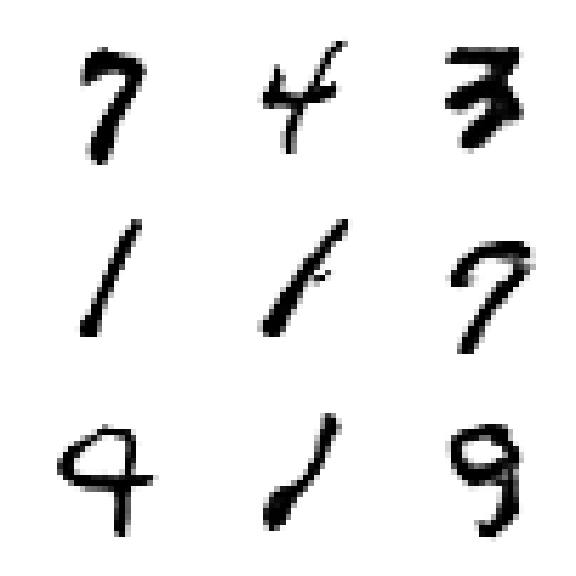 7 4 3
1 1 7
9 1 9